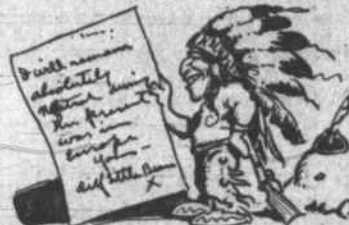 I will remain
absolutely
neutral during
the present
war in
Europe
your—
X